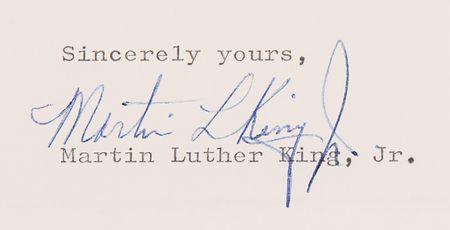 Sincerely yours,
Martin L King Jr
Martin Luther King, Jr.